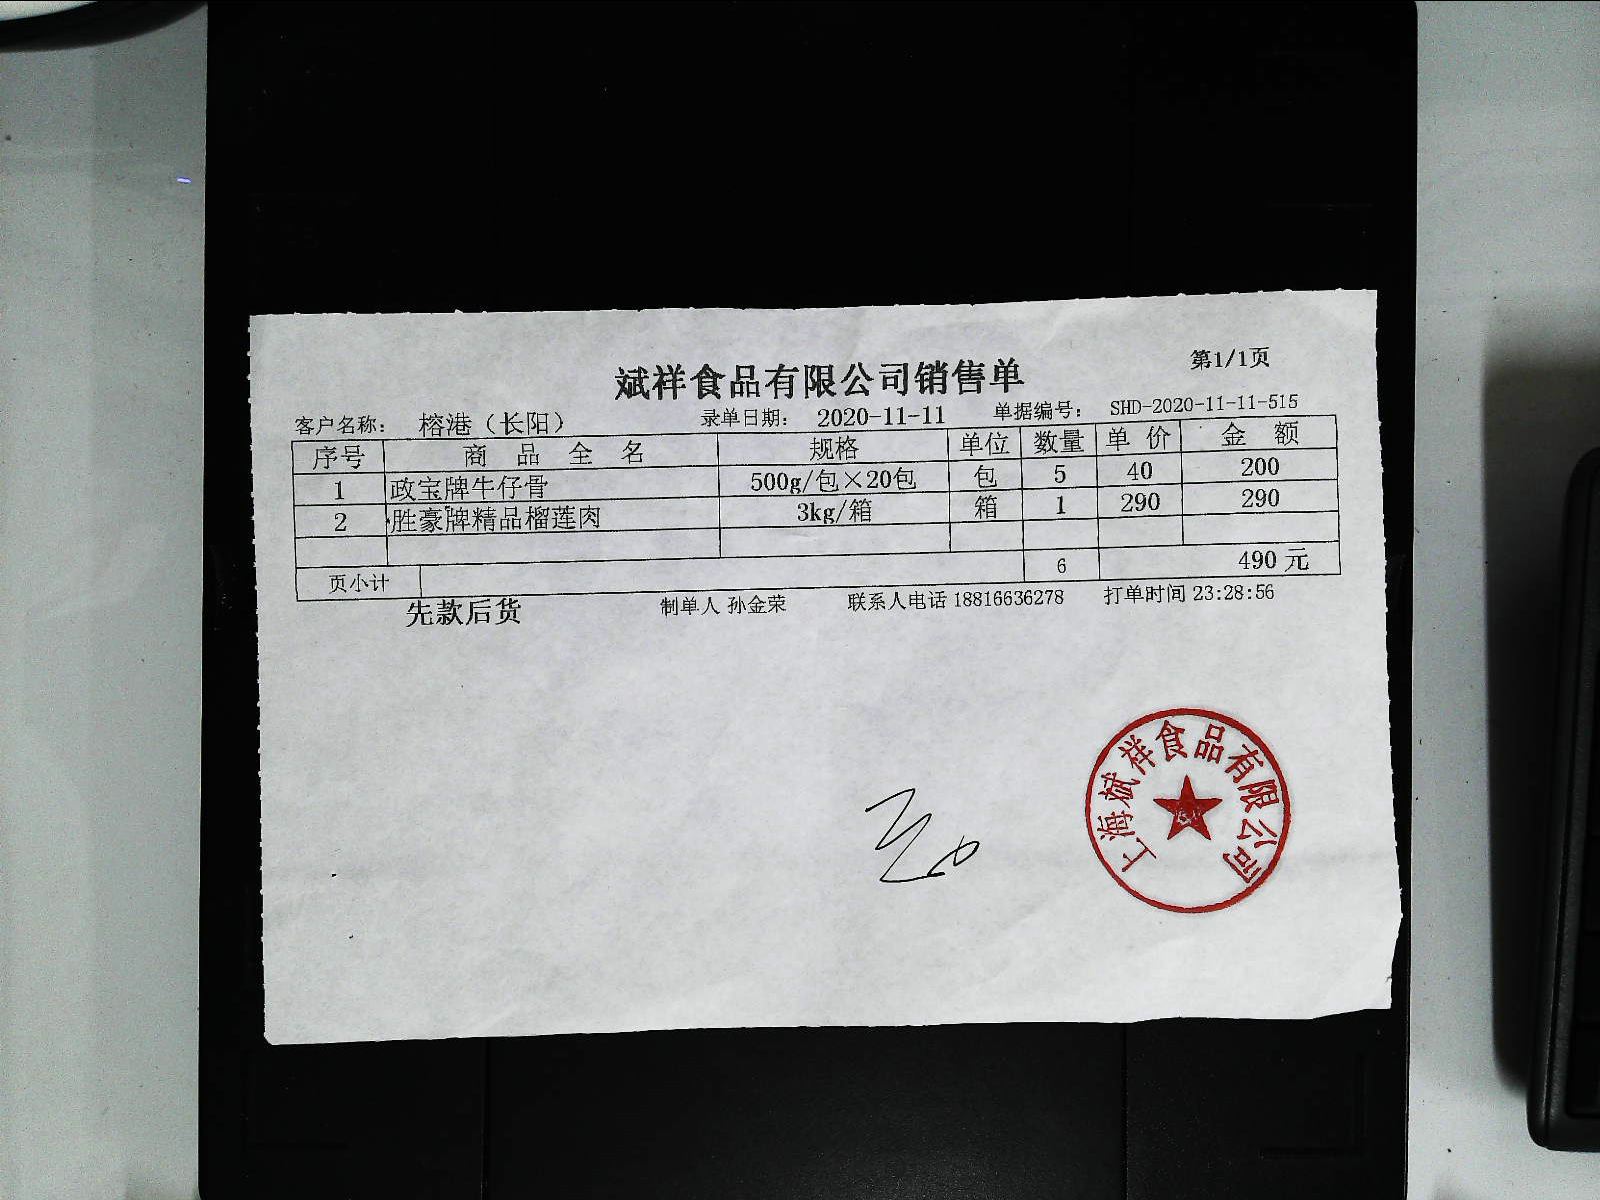 斌祥食品有限公司销售单
第1/1页
客户名称： 榕港（长阳） 录单日期： 2020-11-11 单据编号： SHD-2020-11-11-515
序号 商品全名 规格 单位 数量 单价 金额
1 政宝牌牛仔骨 500g/包×20包 包 5 40 200
2 胜豪牌精品榴莲肉 3kg/箱 箱 1 290 290
页小计 6 490 元
先款后货 制单人 孙金荣 联系人电话 18816636278 打单时间 23:28:56
上海斌祥食品有限公司